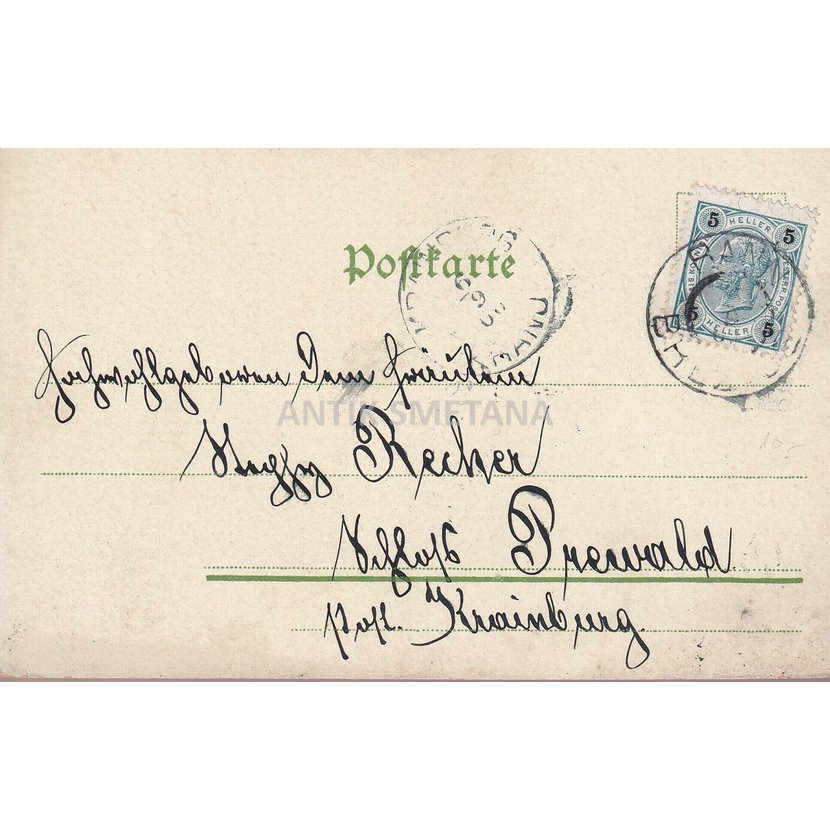 Postkarte
5 HELLER 5
5 HELLER 5
Hochwohlgeboren Dem Fräulein
ANTIK SMETANA
Recher
Schloß Prewald
Post. Krainburg.
10.-